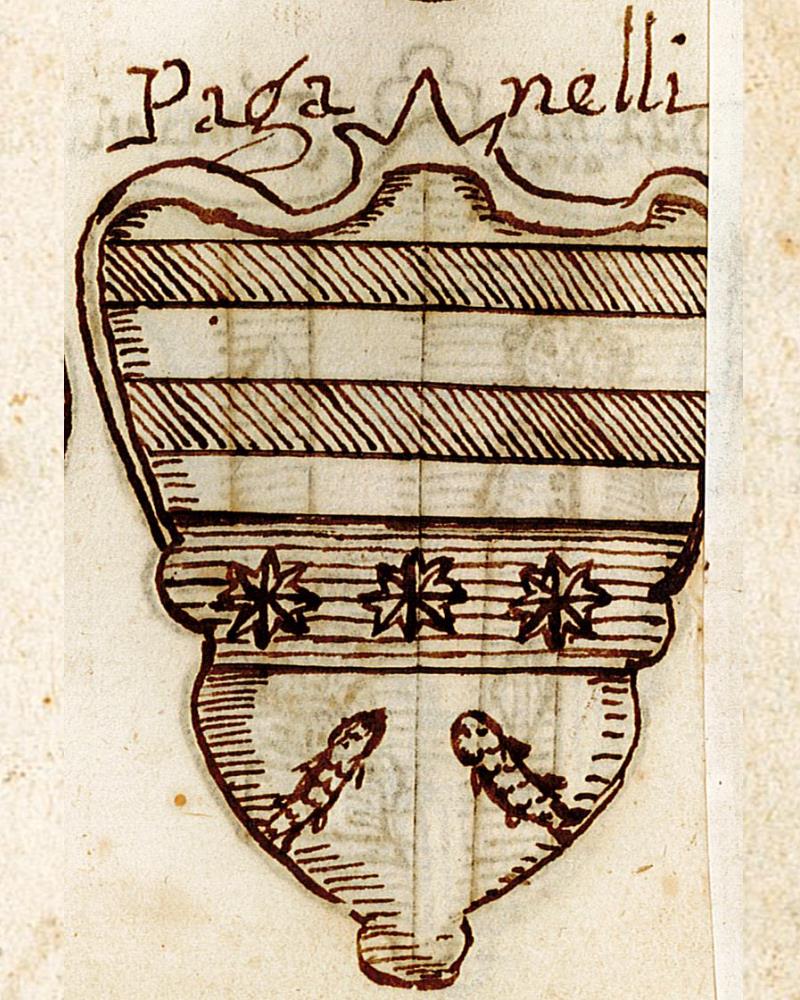 Paga nelli